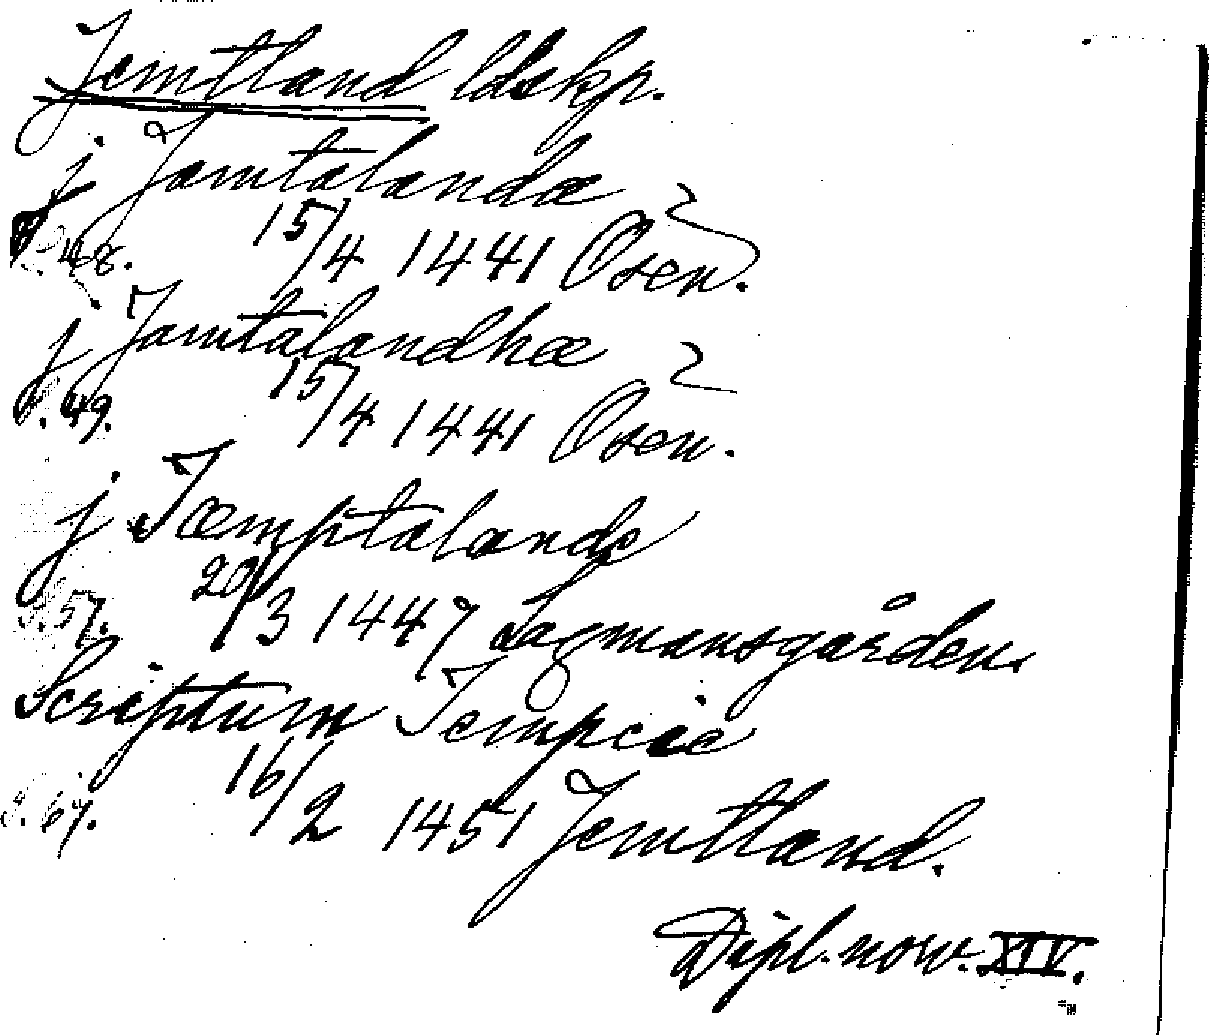 Jemtland ldskp.
j Jamtalandæ
S. 48. 15/4 1441 Osen.
j Jamtalandhæ
S. 49. 15/4 1441 Osen.
j Jæmptalande
S. 57. 20/3 1447 Lagmansgården.
Scriptum Jempcie
S. 67. 16/2 1451 Jemtland.
Dipl. norv. XIV.